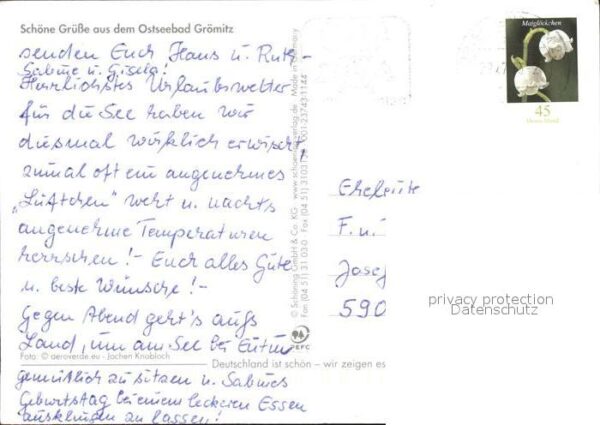 Schöne Grüße aus dem Ostseebad Grömitz
senden Euch Hans u. Ruth -
Sabine u. Gisela!
Herrlichstes Urlaubswetter
für die See haben wir
diesmal wirklich erwischt,
zumal oft ein angenehmes
„Lüftchen" weht u. nachts
angenehme Temperaturen
herrschen! - Euch alles Gute
u. beste Wünsche! -
Gegen Abend geht's aufs
Land, um am See bei Eutin
Foto: © aeroverde.eu - Jochen Knobloch
gemütlich zu sitzen u. Sabines
Geburtstag bei einem leckeren Essen
ausklingen zu lassen!
Deutschland ist schön – wir zeigen es
© Schöning GmbH & Co. KG · www.schoening-verlag.de · Made in Germany
Fon (04 51) 31 03-0 · Fax (04 51) 3103
PEFC
Maiglöckchen
45
Eheleute
F. u.
Josef
590
privacy protection
Datenschutz